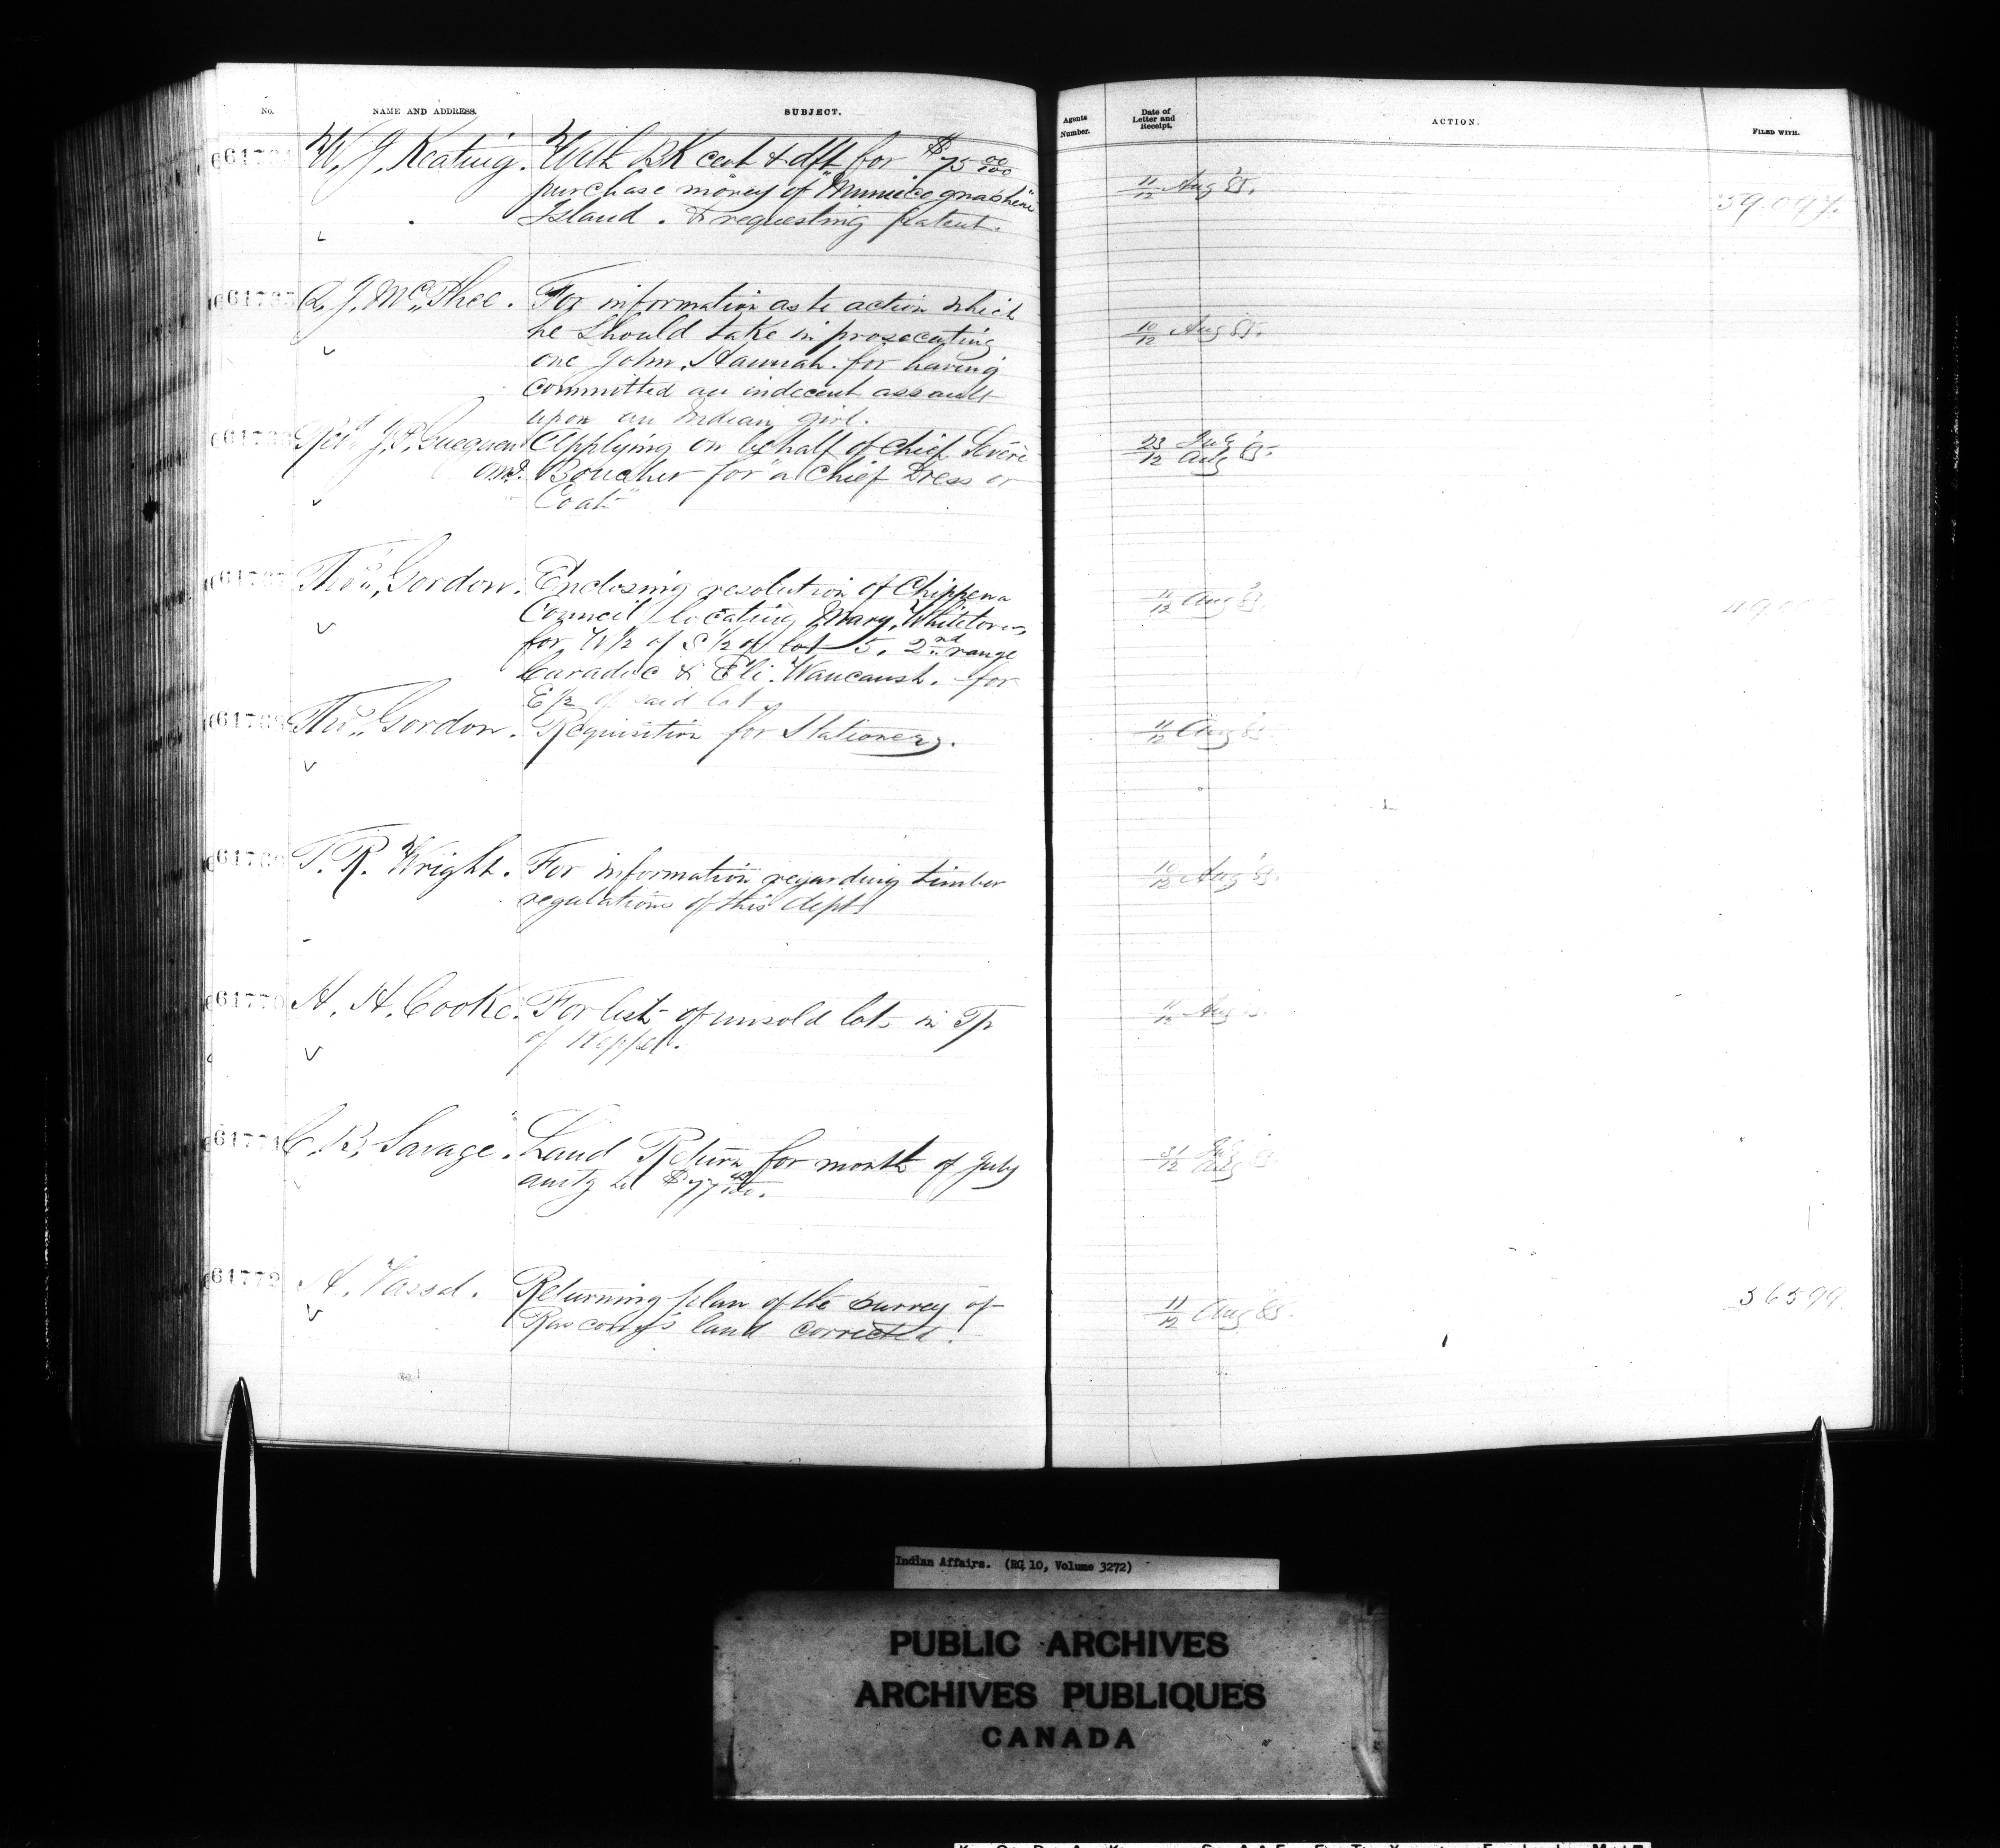 No.
NAME AND ADDRESS.
SUBJECT.
Agents Number.
Date of Letter and Receipt.
ACTION.
FILED WITH.
W. J. Keating. With BK cert & dft for $75 00/100
purchase money of "
Island. & requesting patent.
11/12 Aug '85.
59.097.
61765 A. J. McPhee. For information as to action which
he should take in prosecuting
one John Hannah for having
committed an indecent assault
upon an Indian girl.
10/12 Aug 85.
Revd J. P. Gueguen Applying on behalf of Chief Sévère
OMI. Boucher for "a Chief Dress or
Coat"
23/12 July/Aug '85.
61767 Thos. Gordon. Enclosing resolution of Chippewa
Council locating Mary
for W 1/2 of S 1/2 of lot 5. 2nd range
Caradoc & Eli Waucaush. for
E 1/2 of said lot
11/12 Aug 85.
61768 Thos. Gordon. Requisition for Stationery.
11/12 Aug 85.
61769 T. R. Wright. For information regarding timber
regulations of this dept
10/12 Aug '85.
61770 H. H. Cooke. For list of unsold lots in Tp
of Keppel.
11/12 Aug
61771 C. B. Savage. Land Return for month of July
amtg to $77
31/12 July/Aug
61772 A. Vassal. Returning plan of the Survey of
land corrected.
11/12 Aug 85.
36599.
Indian Affairs. (RG 10, Volume 3272)
PUBLIC ARCHIVES
ARCHIVES PUBLIQUES
CANADA